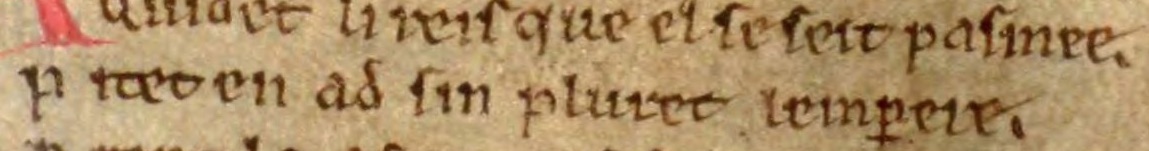 Quidet li reiſ que el ſe ſeit paſmee.
P itet en ad ſin pluret lemꝑere.